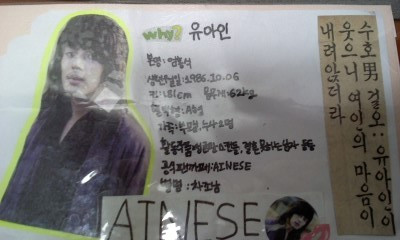 Why? 유아인
본명: 엄홍식
생년월일: 1986.10.06
키: 181cm 몸무게: 62kg
혈액형: A형
가족: 부모형, 누나 2명
활동작품: 앤티크, 결혼 못하는 남자 등등
공식 팬카페: AINESE
별명: 차조남
AINESE
수호男 걸오: 유아인이
웃으니 여인의 마음이
내려앉더라